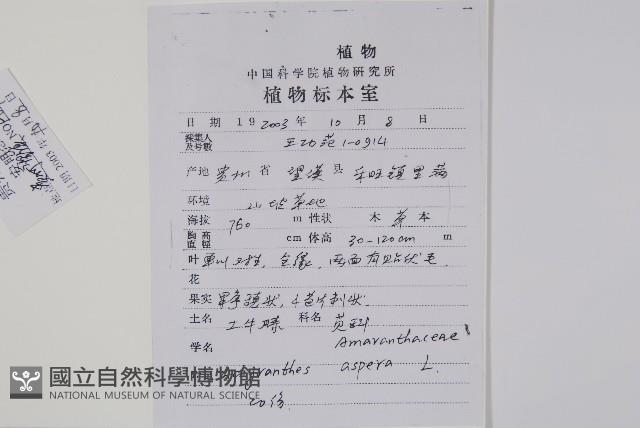 植物
中国科学院植物研究所
植物标本室
日 期 19 2003 年 10 月 8 日
采集人
及号数 王功范 1-0914
产地 贵州 省 望谟 县 乐旺镇
环境 山坡草地
海拔 760 m 性状 木 草 本
胸高
直径 cm 体高 30-120cm m
叶 单叶对生, 全缘, 两面有贴伏毛
花
果实
土名 土牛膝 科名 苋科
Amaranthaceae
学名
aspera L.
國立自然科學博物館
NATIONAL MUSEUM OF NATURAL SCIENCE
日期 2003 年 10 月 8 日